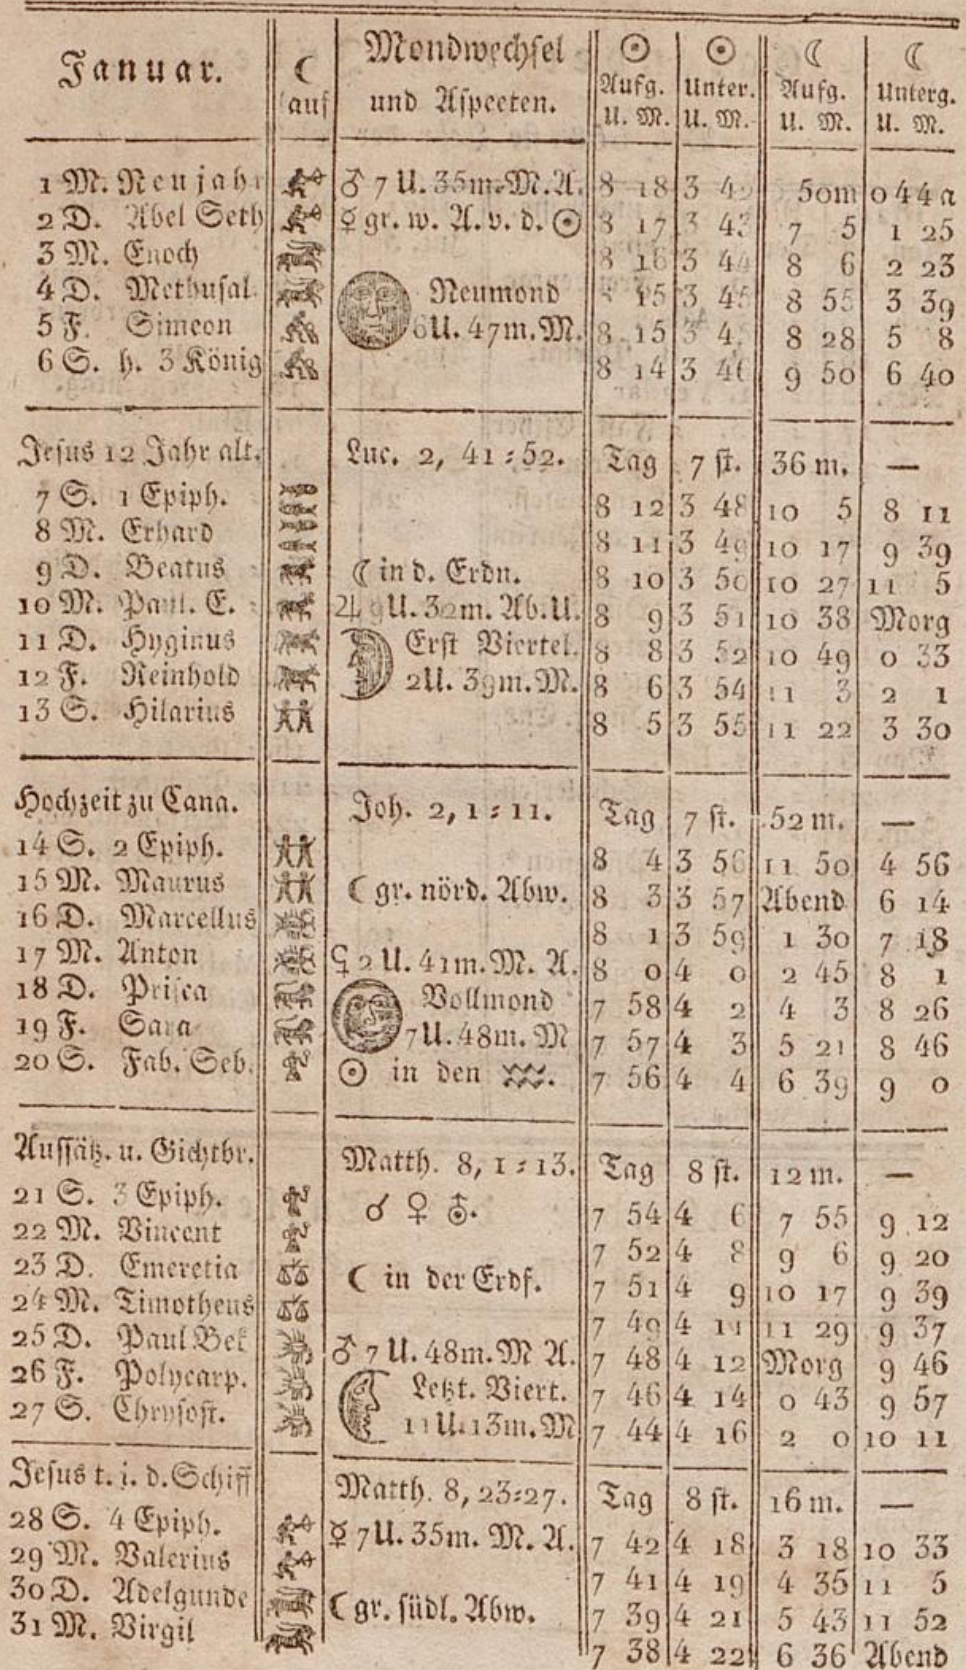 Januar. ☾ auf Mondwechsel und Aspecten. ☉ Aufg. U. M. ☉ Unter. U. M. ☾ Aufg. U. M. ☾ Unterg. U. M.
1 M. Neujahr ♂ 7 U. 35m. M. A. 8 18 3 50m 0 44a
2 D. Abel Seth ☿ gr. w. A. v. d. ☉ 8 17 3 43 7 5 1 25
3 M. Enoch 8 16 3 44 8 6 2 23
4 D. Methusal. Neumond 15 3 45 8 55 3 39
5 F. Simeon 6 U. 47m. M. 8 15 3 8 28 5 8
6 S. h. 3 König 8 14 3 46 9 50 6 40
Jesus 12 Jahr alt. Luc. 2, 41 ⸗ 52. Tag 7 st. 36 m. —
7 S. 1 Epiph. 8 12 3 48 10 5 8 11
8 M. Erhard 8 11 3 49 10 17 9 39
9 D. Beatus ☾ in d. Erdn. 8 10 3 50 10 27 11 5
10 M. Paul. E. ♃ 9 U. 32m. Ab. U. 8 9 3 51 10 38 Morg
11 D. Hyginus Erst Viertel. 8 8 3 52 10 49 0 33
12 F. Reinhold 2 U. 39m. M. 8 6 3 54 11 3 2 1
13 S. Hilarius 8 5 3 55 11 22 3 30
Hochzeit zu Cana. Joh. 2, 1 ⸗ 11. Tag 7 st. 52 m. —
14 S. 2 Epiph. 8 4 3 56 11 50 4 56
15 M. Maurus ☾ gr. nörd. Abw. 8 3 3 57 Abend 6 14
16 D. Marcellus 8 1 3 59 1 30 7 18
17 M. Anton ♀ 2 U. 41m. M. A. 8 0 4 0 2 45 8 1
18 D. Prisca Vollmond 7 58 4 2 4 3 8 26
19 F. Sara 7 U. 48m. M 7 57 4 3 5 21 8 46
20 S. Fab. Seb. ☉ in den ♒. 7 56 4 4 6 39 9 0
Aussätz. u. Gichtbr. Matth. 8, 1 ⸗ 13. Tag 8 st. 12 m. —
21 S. 3 Epiph. ☌ ♀ ⛢. 7 54 4 6 7 55 9 12
22 M. Vincent 7 52 4 8 9 6 9 20
23 D. Emeretia ☾ in der Erdf. 7 51 4 9 10 17 9 39
24 M. Timotheus 7 49 4 11 11 29 9 37
25 D. Paul Bek ♂ 7 U. 48m. M A. 7 48 4 12 Morg 9 46
26 F. Polycarp. Letzt. Viert. 7 46 4 14 0 43 9 57
27 S. Chrysost. 11 U. 13m. M 7 44 4 16 2 0 10 11
Jesus t. i. d. Schiff Matth. 8, 23⸗27. Tag 8 st. 16 m. —
28 S. 4 Epiph. ☿ 7 U. 35m. M. A. 7 42 4 18 3 18 10 33
29 M. Valerius 7 41 4 19 4 35 11 5
30 D. Adelgunde ☾ gr. südl. Abw. 7 39 4 21 5 43 11 52
31 M. Virgil 7 38 4 22 6 36 Abend